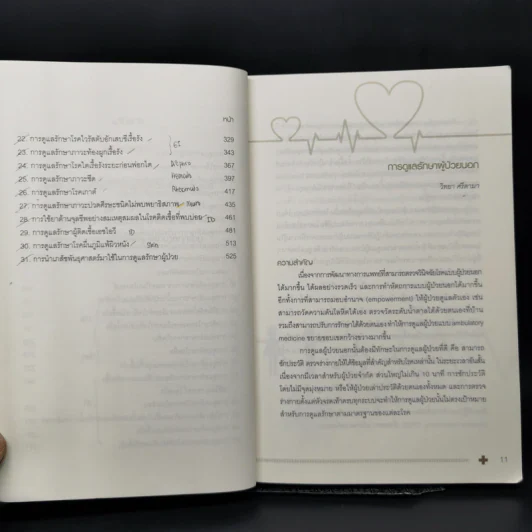 หน้า
22. การดูแลรักษาโรคไวรัสตับอักเสบซีเรื้อรัง 329
23. การดูแลรักษาภาวะท้องผูกเรื้อรัง GI 343
24. การดูแลรักษาโรคไตเรื้อรังระยะก่อนฟอกไต 367
25. การดูแลรักษาภาวะซีด 397
26. การดูแลรักษาโรคเกาต์ 417
27. การดูแลรักษาภาวะปวดศีรษะชนิดไม่พบพยาธิสภาพ Neuro 435
28. การใช้ยาต้านจุลชีพอย่างสมเหตุสมผลในโรคติดเชื้อที่พบบ่อย ID 461
29. การดูแลรักษาผู้ติดเชื้อเอชไอวี ID 481
30. การดูแลรักษาโรคผื่นภูมิแพ้ผิวหนัง Skin 513
31. การนำเภสัชพันธุศาสตร์มาใช้ในการดูแลรักษาผู้ป่วย 525
การดูแลรักษาผู้ป่วยนอก
วิทยา ศรีดามา
ความสำคัญ
เนื่องจากการพัฒนาทางการแพทย์ที่สามารถตรวจวินิจฉัยโรคแบบผู้ป่วยนอก
ได้มากขึ้น ได้ผลอย่างรวดเร็ว และการทำหัตถการแบบผู้ป่วยนอกได้มากขึ้น
อีกทั้งการที่สามารถมอบอำนาจ (empowerment) ให้ผู้ป่วยดูแลตัวเอง เช่น
สามารถวัดความดันโลหิตได้เอง ตรวจวัดระดับน้ำตาลได้ด้วยตนเองที่บ้าน
รวมถึงสามารถปรับการรักษาได้ด้วยตนเอง ทำให้การดูแลผู้ป่วยแบบ ambulatory
medicine ขยายขอบเขตกว้างขวางมากขึ้น
การดูแลผู้ป่วยนอกนั้นต้องมีทักษะในการดูแลผู้ป่วยที่ดี คือ สามารถ
ซักประวัติ ตรวจร่างกายให้ได้ข้อมูลที่สำคัญสำหรับโรคเหล่านั้น ในระยะเวลาอันสั้น
เนื่องจากมีเวลาสำหรับผู้ป่วยจำกัด ส่วนใหญ่ไม่เกิน 10 นาที การซักประวัติ
โดยไม่มีจุดมุ่งหมาย หรือให้ผู้ป่วยเล่าประวัติด้วยตนเองทั้งหมด และการตรวจ
ร่างกายตั้งแต่หัวจรดเท้าครบทุกระบบจะทำให้การดูแลผู้ป่วยนั้นไม่ตรงเป้าหมาย
สำหรับการดูแลรักษาตามมาตรฐานของแต่ละโรค
11